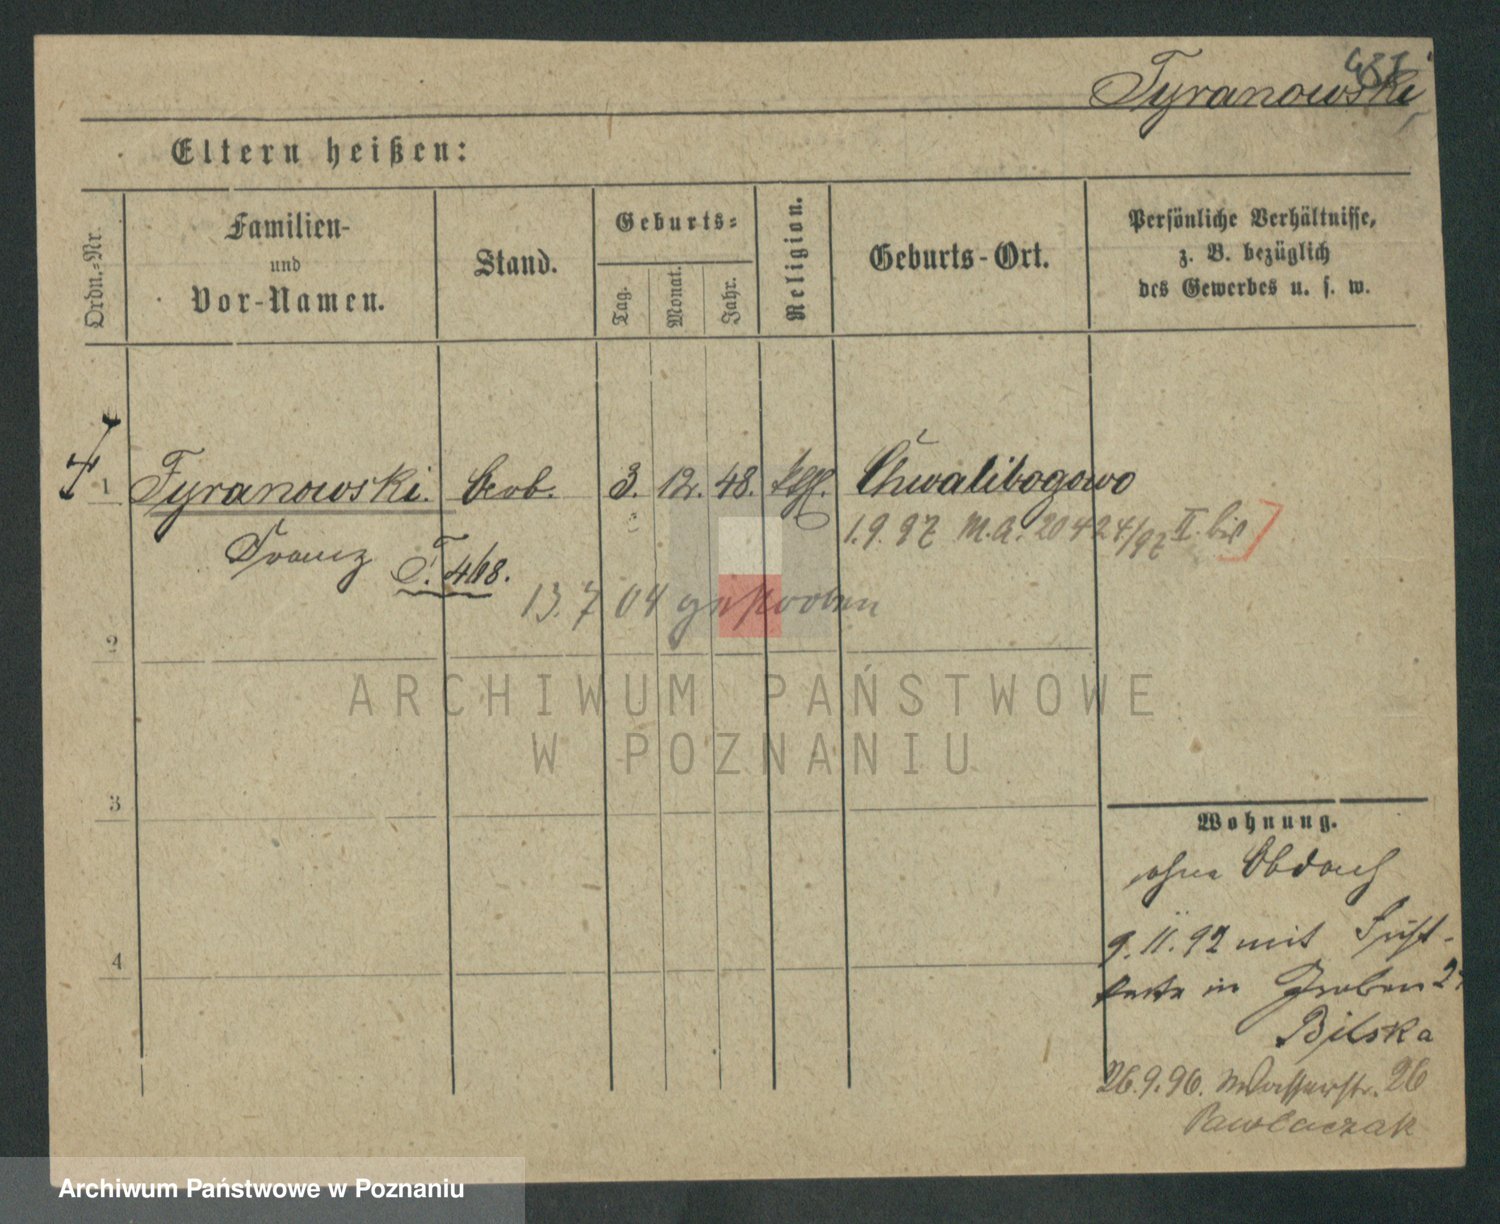 Tyranowski
Eltern heißen:
Ordn.-Nr.
Familien-
und
Vor-Namen.
Stand.
Geburts-
Tag.
Monat.
Jahr.
Religion.
Geburts-Ort.
Persönliche Verhältnisse,
z. B. bezüglich
des Gewerbes u. s. w.
1 Tyranowski. 3. 12. 48. kth. Chwalibogowo
Franz T. 468.
1.9.97 M.A. 20424/97 II.
13.7 04 gestorben
2
ARCHIWUM PAŃSTWOWE
W POZNANIU
3
4
Wohnung.
ohne Obdach
9.11.92 mit
in Graben
Bilska
26.9.96. Wasserstr. 26
Pawlaczak
Archiwum Państwowe w Poznaniu